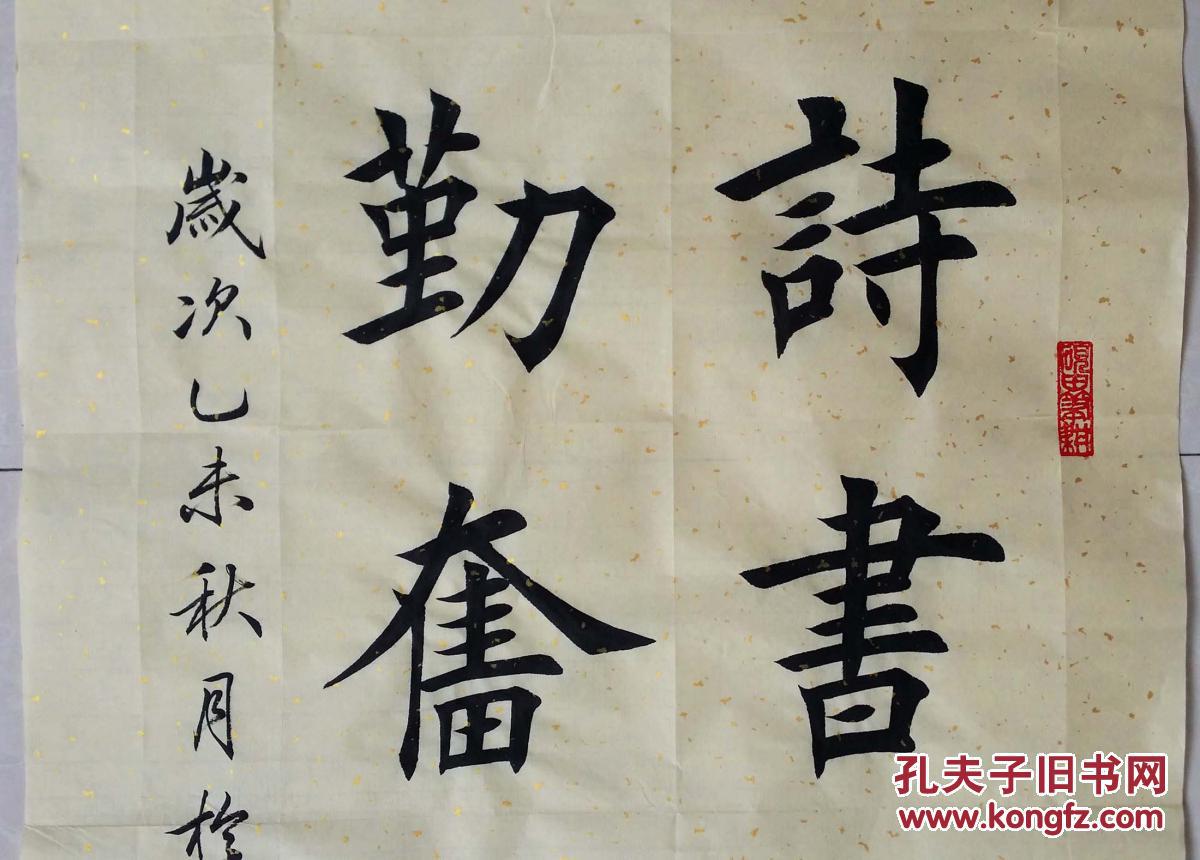 詩書
勤奮
歲次乙未秋月於
硯田筆耕
孔夫子旧书网
www.kongfz.com